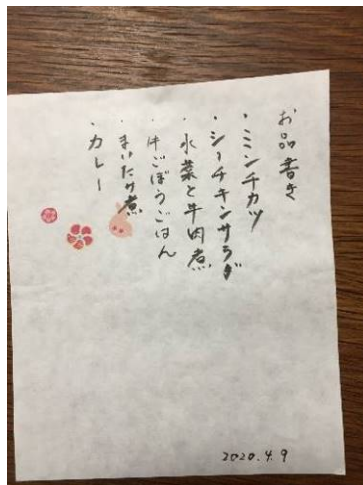 お品書き
・ミンチカツ
・シーチキンサラダ
・水菜と牛肉煮
・牛ごぼうごはん
・まいたけ煮
・カレー
2020.4.9